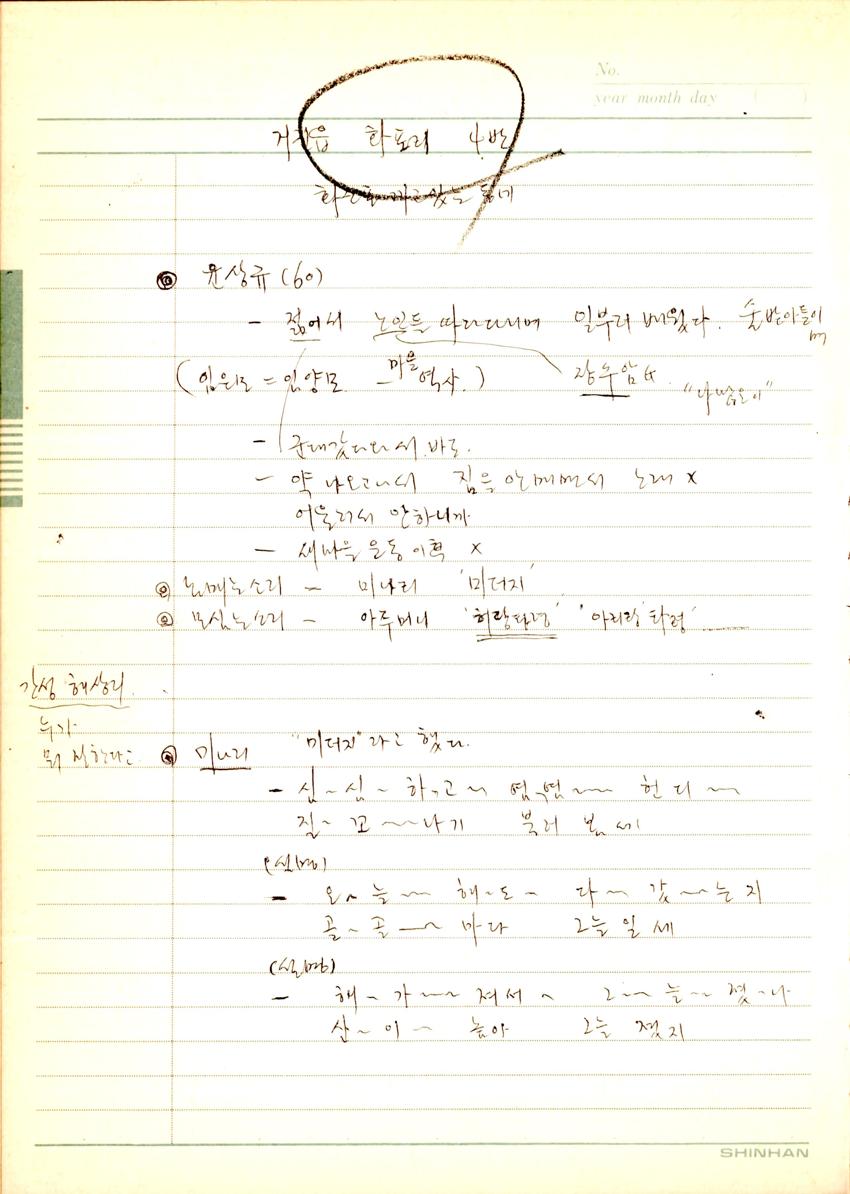 No.
year month day ( )
거진읍 화포리 4반
윤상규 (60)
- 젊어서 노인들 따라다니며 일부러 배웠다. 술받아들이며
( = 마을 역사.) 장수
- 군대갔다와서 바로.
- 약 나오고나서 짐을 안매면서 노래 x
어울려서 안하니까
- 새마을 운동 이후 x
논매는소리 - 미나리 '미더지'
모심는소리 - 아루머니 '허랑타령' '아리랑' 타령'
간성 해상리
누가
뭐 잘한다고
미나리 "미더지"라고 했다.
- 심~심~하~고~ 염~염~~ 헌디~~
질~꼬~~나기 불러 봅세
(설명)
- 오~늘~~ 해~도~ 다~ 갔~~는지
골~골~~ 마다 그늘일세
(설명)
- 해~가~~ 져서~ 그~~늘~ 졌~나
산~이~ 높아 그늘 졌지
SHINHAN